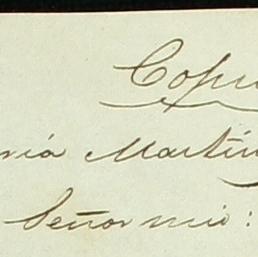 Copi
nia Martin
Señor mio: